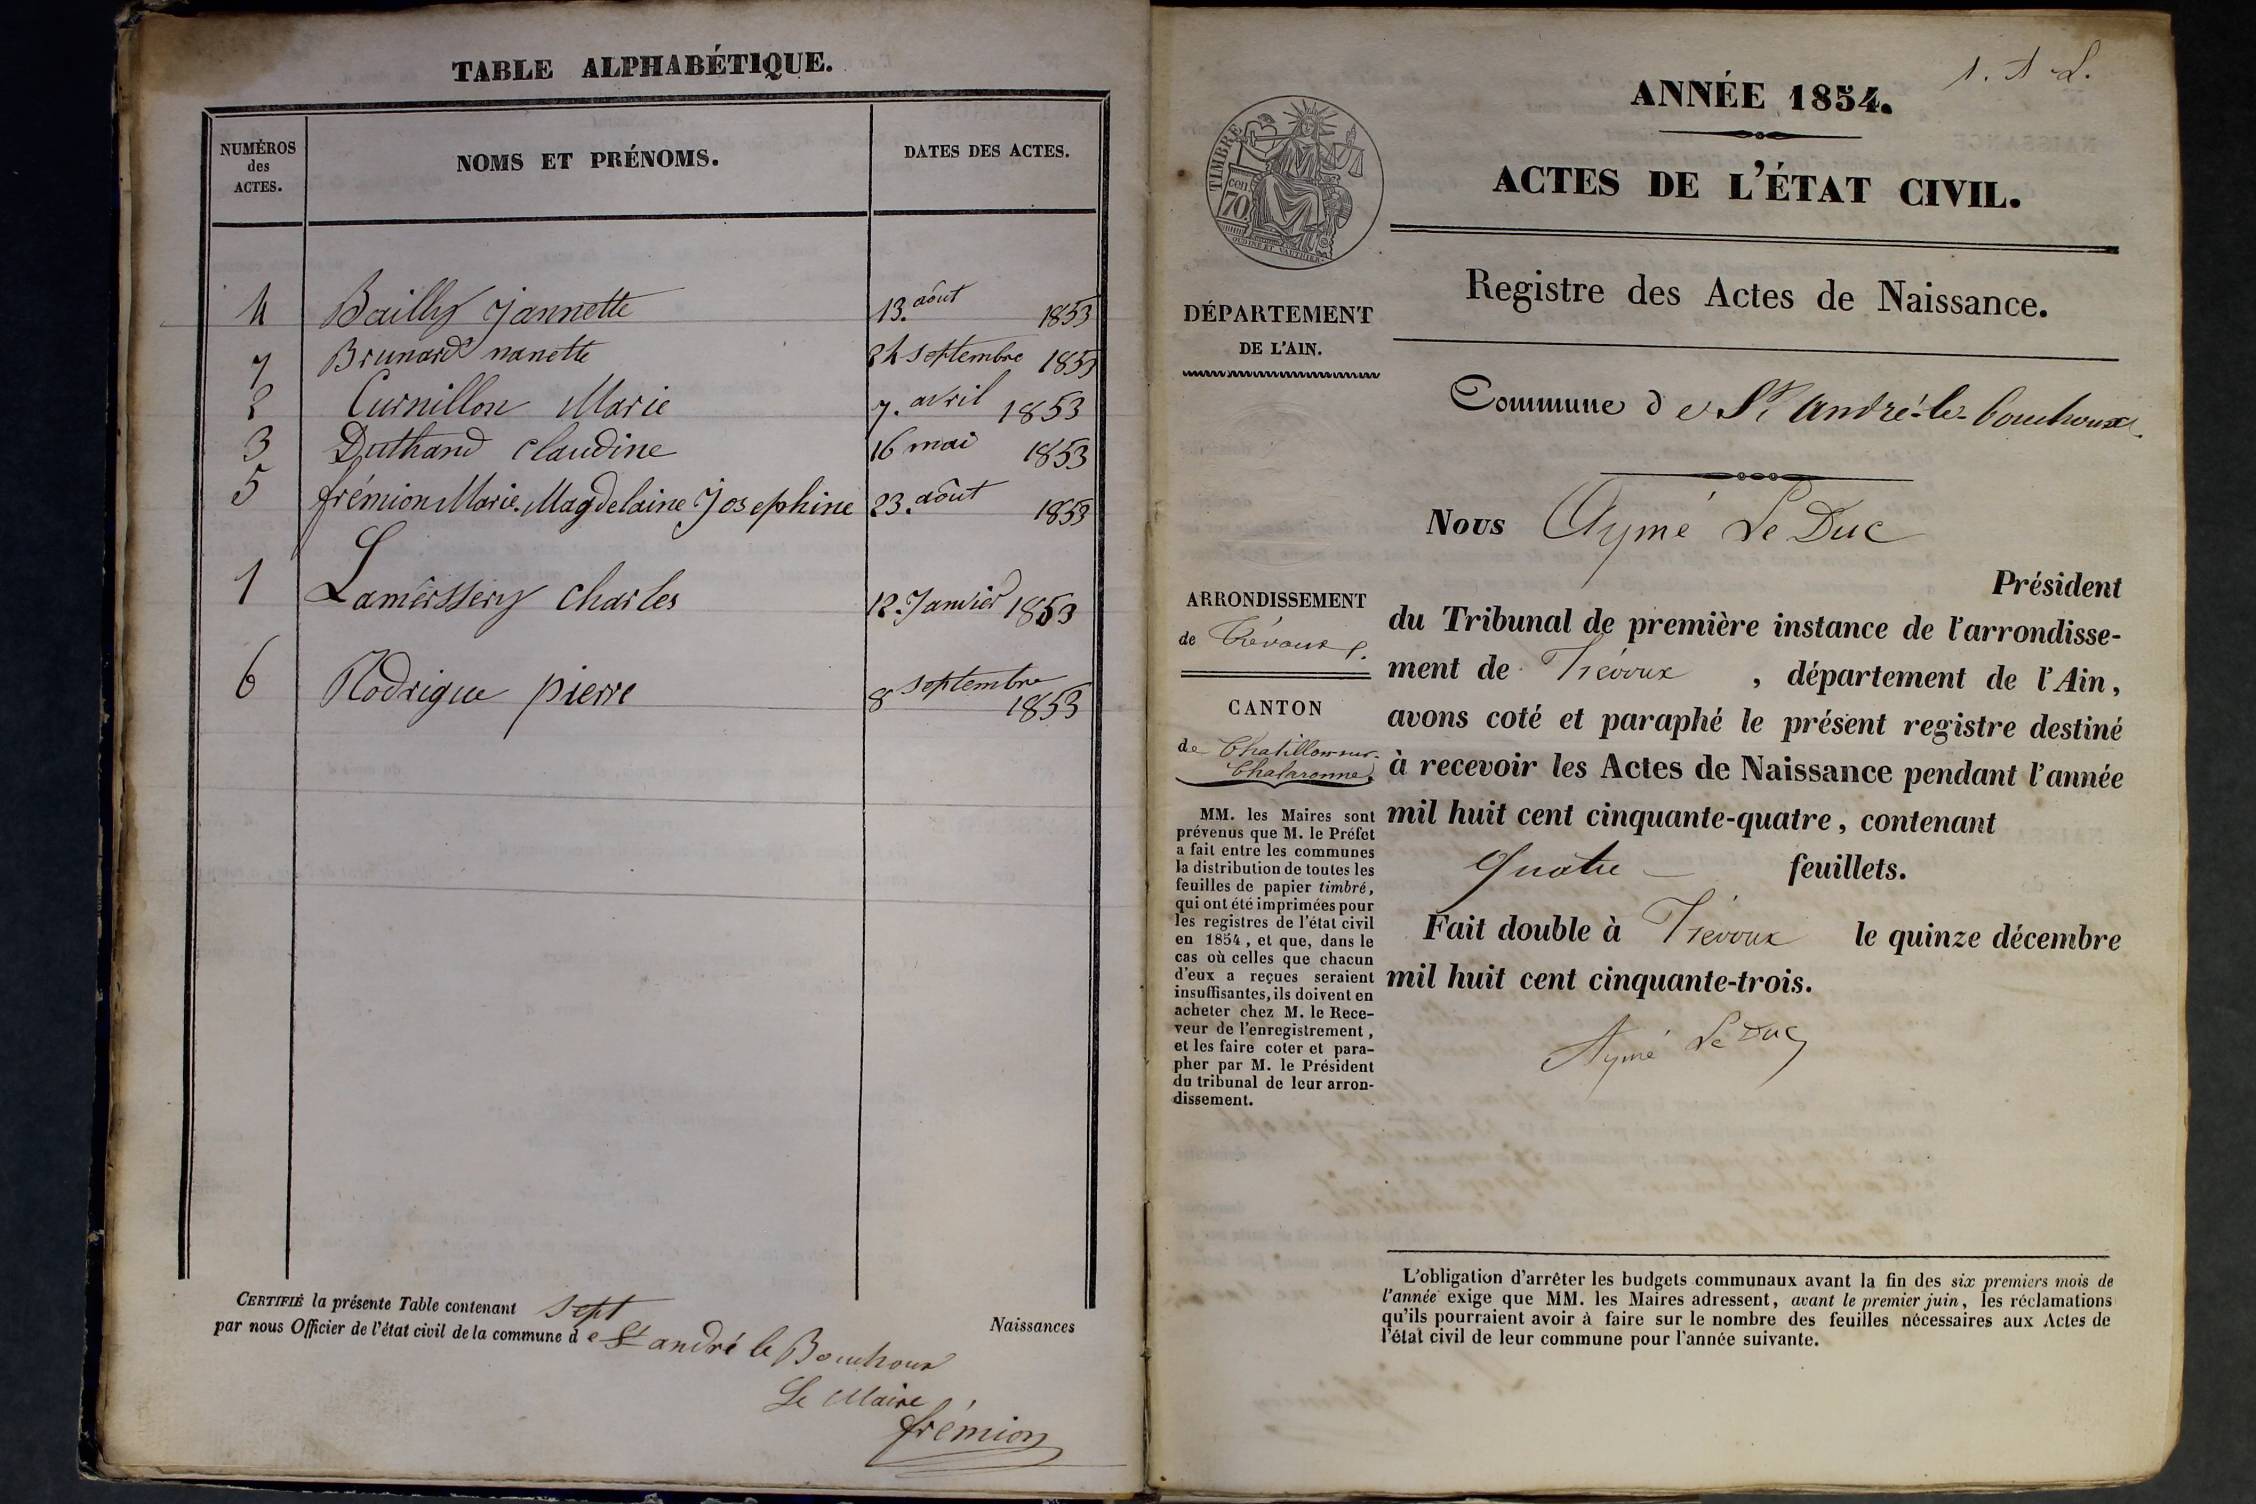 TABLE ALPHABÉTIQUE.
NUMÉROS des ACTES. NOMS ET PRÉNOMS. DATES DES ACTES.
4 Bailly Jannette 13. août 1853
7 Brunard nanette 24 septembre 1853
2 Curnillon Marie 7. avril 1853
3 Duthand Claudine 16 mai 1853
5 frémion Marie. Magdelaine Josephine 23. août 1853
1 Lamerssery Charles 12. Janvier 1853
6 Rodrigue pierre 8 septembre 1853
CERTIFIÉ la présente Table contenant sept Naissances
par nous Officier de l'état civil de la commune de St andré le Bouchoux
Le Maire
frémion
1. A L.
ANNÉE 1854.
ACTES DE L'ÉTAT CIVIL.
TIMBRE
70 cen
OUDINE ET GAUTHIER
Registre des Actes de Naissance.
DÉPARTEMENT
DE L'AIN.
Commune de St. André-le-bouchoux
ARRONDISSEMENT
de Trévoux
CANTON
de Chatillon-sur-
Chalaronne
MM. les Maires sont
prévenus que M. le Préfet
a fait entre les communes
la distribution de toutes les
feuilles de papier timbré,
qui ont été imprimées pour
les registres de l'état civil
en 1854, et que, dans le
cas où celles que chacun
d'eux a reçues seraient
insuffisantes, ils doivent en
acheter chez M. le Rece-
veur de l'enregistrement,
et les faire coter et para-
pher par M. le Président
du tribunal de leur arron-
dissement.
Nous Aymé Le Duc
Président
du Tribunal de première instance de l'arrondisse-
ment de Trévoux, département de l'Ain,
avons coté et paraphé le présent registre destiné
à recevoir les Actes de Naissance pendant l'année
mil huit cent cinquante-quatre, contenant
Quatre feuillets.
Fait double à Trévoux le quinze décembre
mil huit cent cinquante-trois.
Aymé Le Duc
L'obligation d'arrêter les budgets communaux avant la fin des six premiers mois de
l'année exige que MM. les Maires adressent, avant le premier juin, les réclamations
qu'ils pourraient avoir à faire sur le nombre des feuilles nécessaires aux Actes de
l'état civil de leur commune pour l'année suivante.